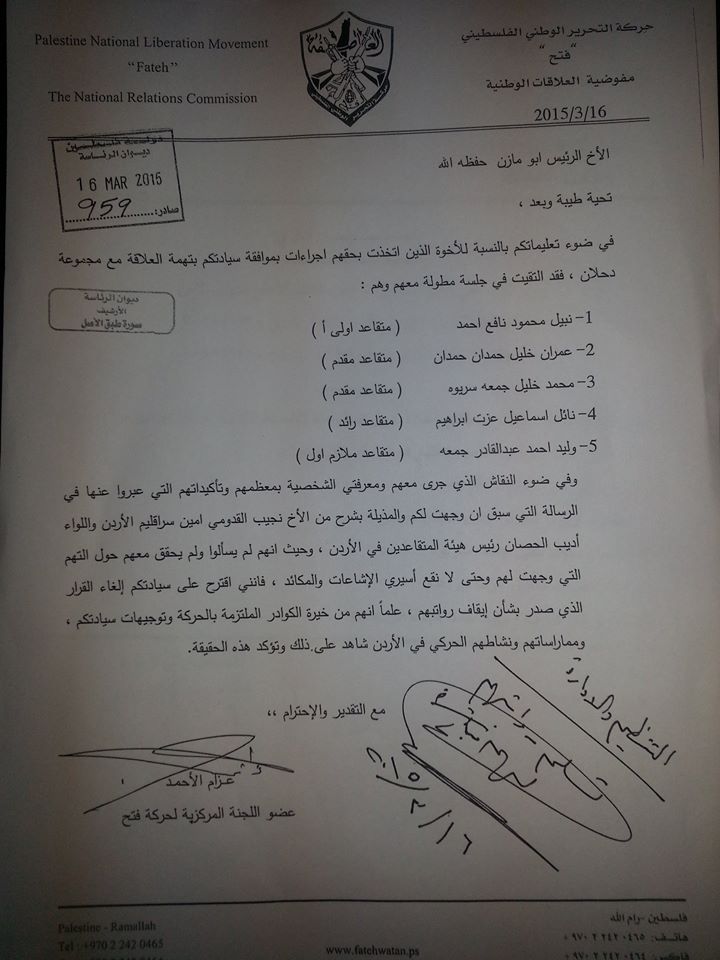 Palestine National Liberation Movement
“Fateh”
The National Relations Commission
العاصفة
حركة التحرير الوطني الفلسطيني
“فتح”
مفوضية العلاقات الوطنية
2015/3/16
دولة فلسطين
ديوان الرئاسة
16 MAR 2015
صادر: 959
الأخ الرئيس ابو مازن حفظه الله
تحية طيبة وبعد ،
في ضوء تعليماتكم بالنسبة للأخوة الذين اتخذت بحقهم اجراءات بموافقة سيادتكم بتهمة العلاقة مع مجموعة
دحلان ، فقد التقيت في جلسة مطولة معهم وهم :
ديوان الرئاسة
الأرشيف
صورة طبق الأصل
1- نبيل محمود نافع احمد ( متقاعد اولى أ )
2- عمران خليل حمدان حمدان ( متقاعد مقدم )
3- محمد خليل جمعه سريوه ( متقاعد مقدم )
4- نائل اسماعيل عزت ابراهيم ( متقاعد رائد )
5- وليد احمد عبدالقادر جمعه ( متقاعد ملازم اول )
وفي ضوء النقاش الذي جرى معهم ومعرفتي الشخصية بمعظمهم وتأكيداتهم التي عبروا عنها في
الرسالة التي سبق ان وجهت لكم والمذيلة بشرح من الأخ نجيب القدومي امين سراقليم الأردن واللواء
أديب الحصان رئيس هيئة المتقاعدين في الأردن ، وحيث انهم لم يسألوا ولم يحقق معهم حول التهم
التي وجهت لهم وحتى لا نقع أسيري الإشاعات والمكائد ، فانني اقترح على سيادتكم إلغاء القرار
الذي صدر بشأن إيقاف رواتبهم ، علماً انهم من خيرة الكوادر الملتزمة بالحركة وتوجيهات سيادتكم ،
ومماراساتهم ونشاطهم الحركي في الأردن شاهد على ذلك وتؤكد هذه الحقيقة.
مع التقدير والإحترام ،،
التنظيم والادارة
عزام الأحمد
عضو اللجنة المركزية لحركة فتح
Palestine - Ramallah
Tel : +970 2 242 0465
www.fatehwatan.ps
فلسطين -رام الله
هاتف: ٢٤٢٠٤٦٥ ٢ ٩٧٠+